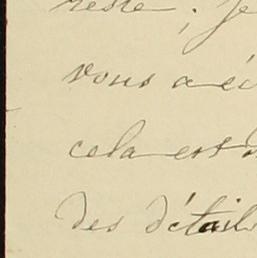 reste ; je
vous a éc
cela est d
des détails